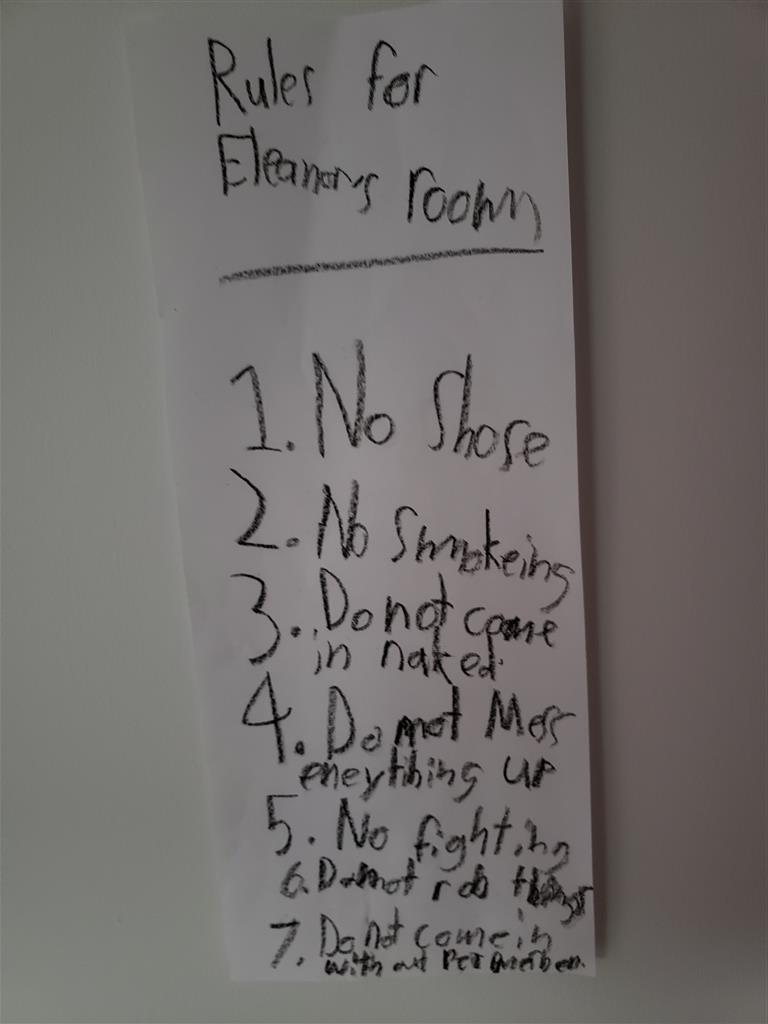 Rules for
Eleanor's room
1. No Shose
2. No Smokeing
3. Do not come
in naked.
4. Do not Mess
eneything up
5. No fighting
6. Do not rob things
7. Do not come in
with out